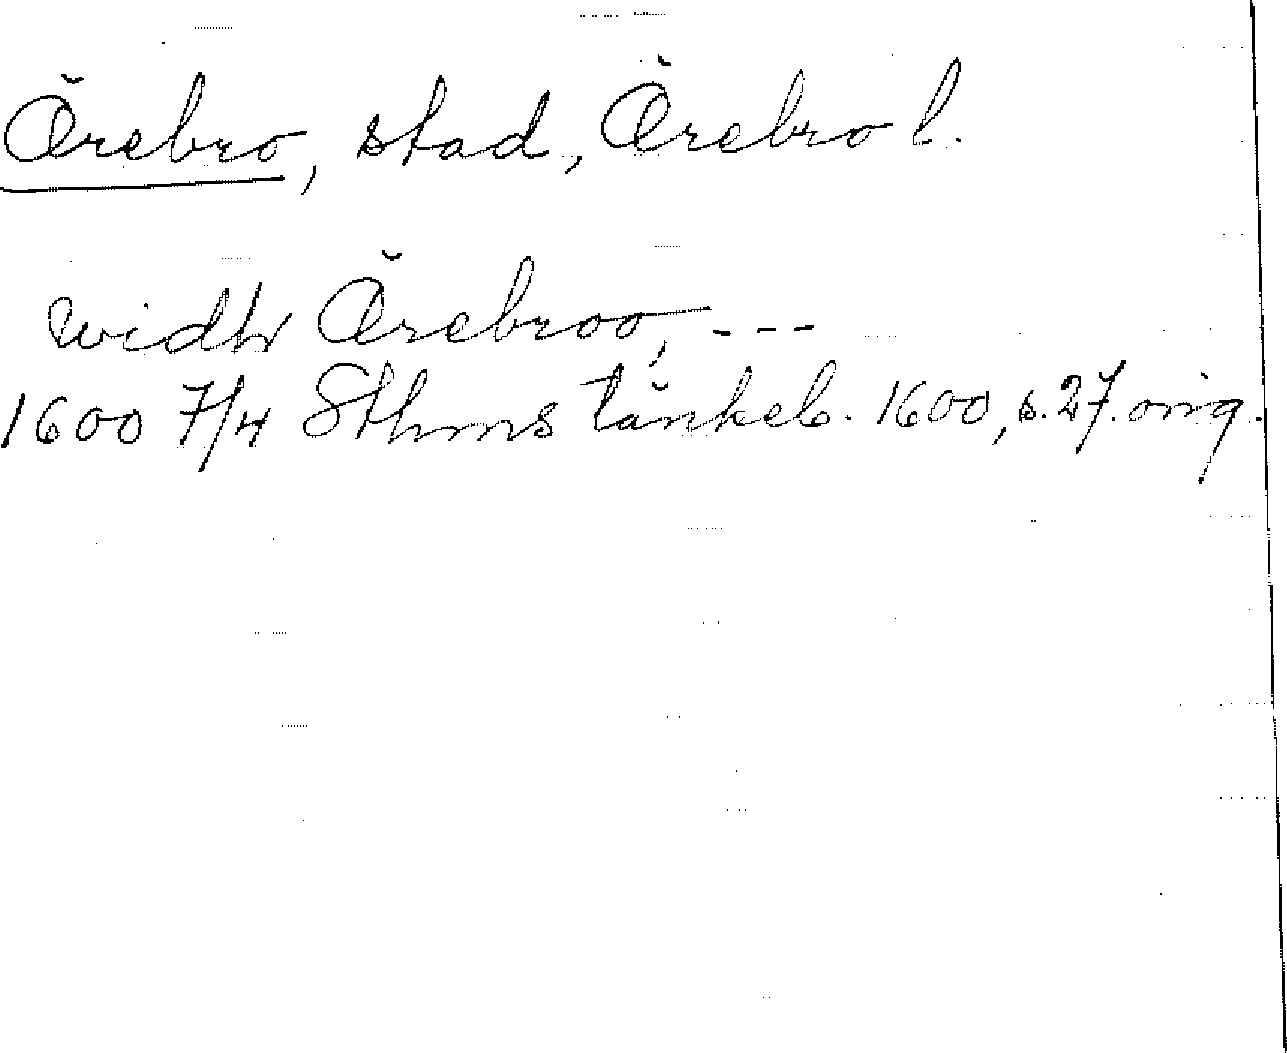 Örebro, stad, Örebro l.
widh Örebroo, ---
1600 7/4 Sthms tänkeb. 1600, s. 27. orig.